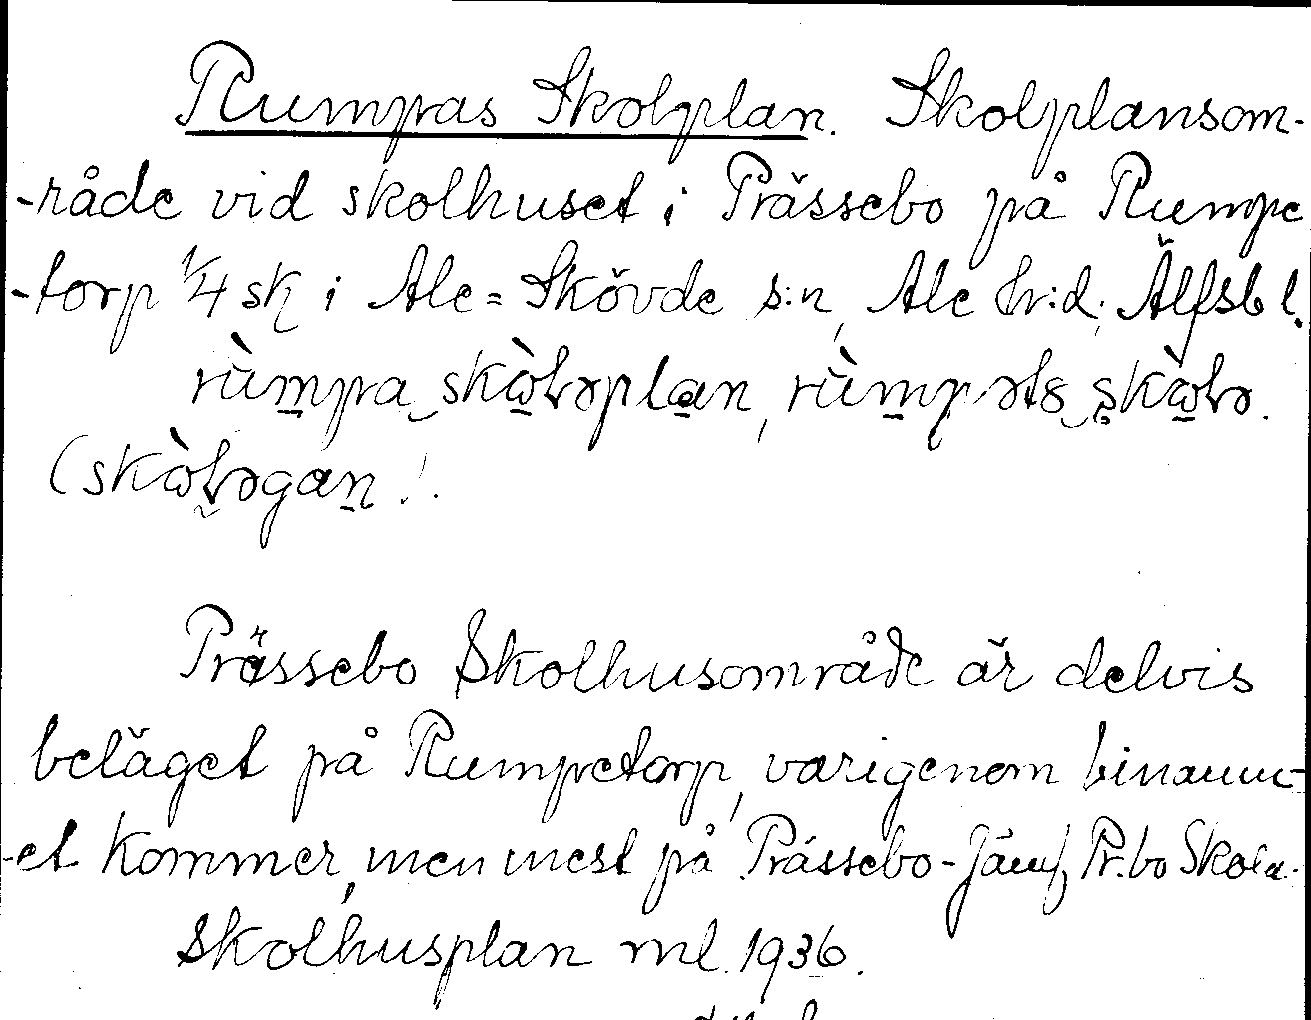 Rumpas Skolplan. Skolplansom-
-råde vid skolhuset i Prässebo på Rumpe
-torp 1/4 sk i Ale=Skövde s:n, Ale hr:d; Älfsb l.
rùmpa skὼɫəplan, rùmpəts skὼɫə.
(skὼɫəgan!.
Prässebo Skolhusområde är delvis
beläget på Rumpetorp, varigenom binamn-
-et kommer, men mest på Prässebo-Jämf Pr.bo Skola.
Skolhusplan ml. 1936.